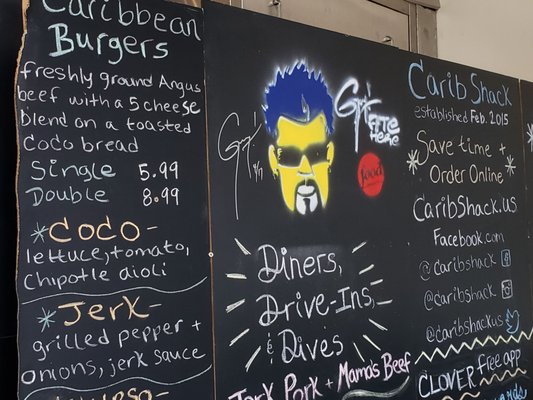 Caribbean
Burgers
freshly ground Angus
beef with a 5 cheese
blend on a toasted
Coco bread
Single 5.99
Double 8.99
*Coco-
lettuce, tomato,
Chipotle aioli
*Jerk-
grilled pepper +
onions, jerk sauce
ATE
Here
food
Diners,
Drive-Ins,
& Dives
Jerk Pork + Mama's Beef
Carib Shack
established Feb. 2015
*Save time + *
Order Online
CaribShack.us
Facebook.com
@caribshack
@caribshack
@caribshackus
CLOVER free app